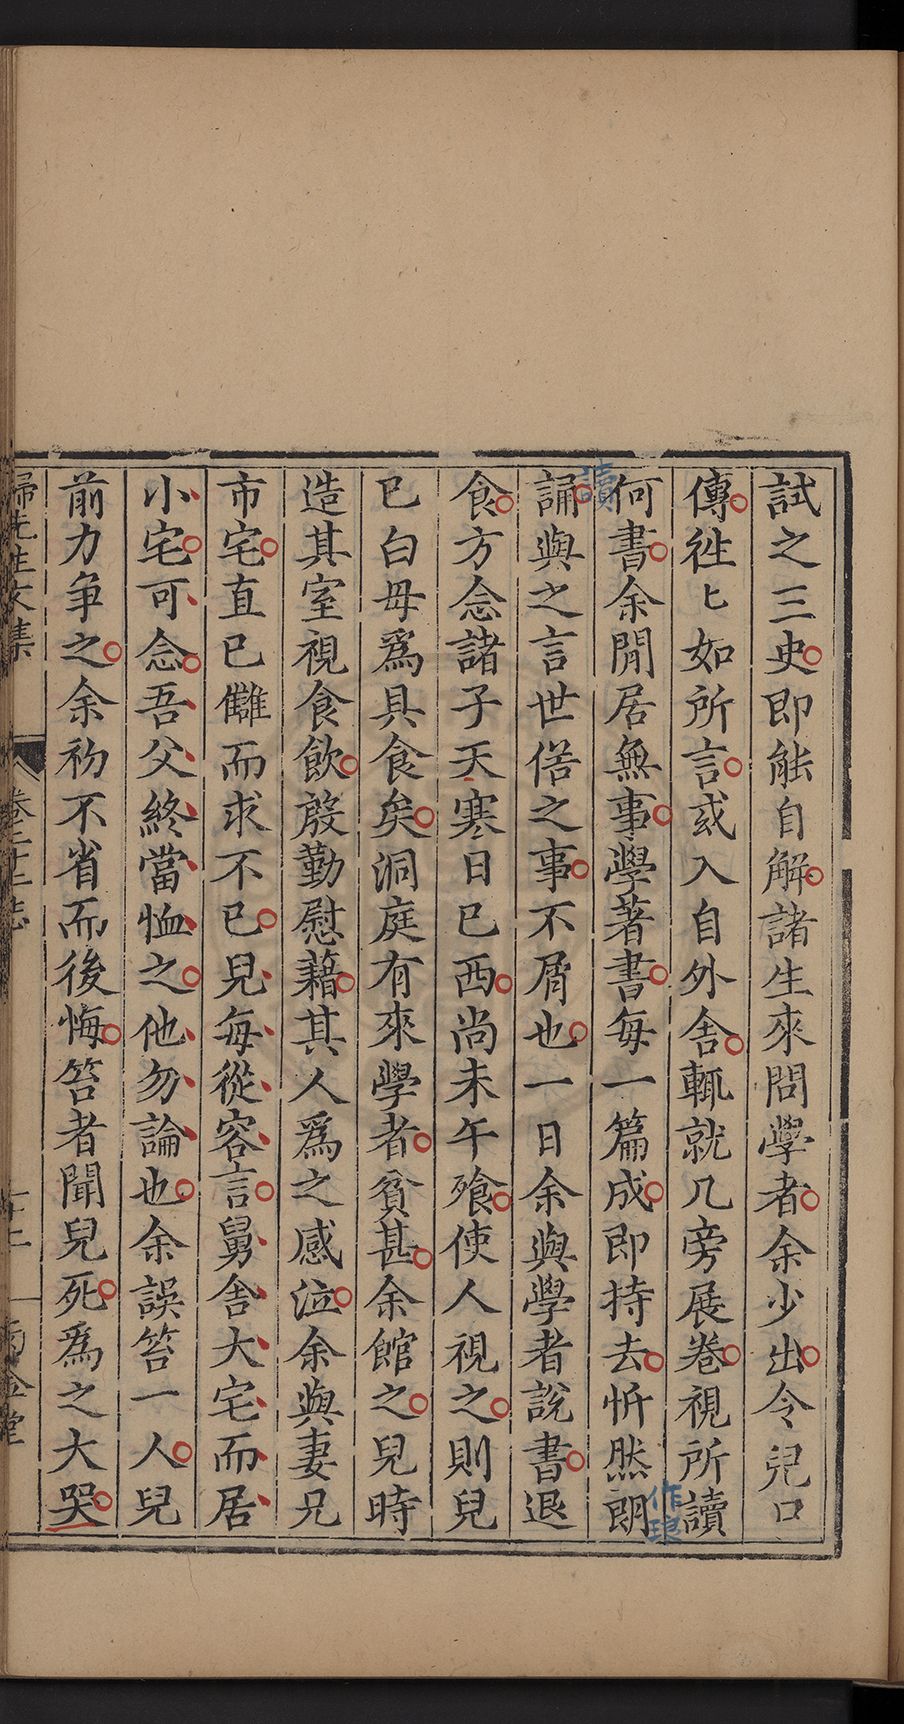 試之三史即能自解諸生來問學者余少出令兒口
傳徃〻如所言或入自外舍輒就几旁展卷視所讀
何書余閒居無事學著書每一篇成即持去忻然朗
作琅
誦與之言世偌之事不屑也一日余與學者說書退
讀
食方念諸子天寒日已西尚未午飱使人視之則兒
已白母爲具食矣洞庭有來學者貧甚余館之兒時
造其室視食飲殷勤慰藉其人爲之感泣余與妻兄
市宅直已讎而求不已兒每從容言舅舍大宅而居
小宅可念吾父終當恤之他勿論也余誤笞一人兒
前力争之余初不省而後悔笞者聞兒死爲之大哭
歸先生文集
卷二十二志